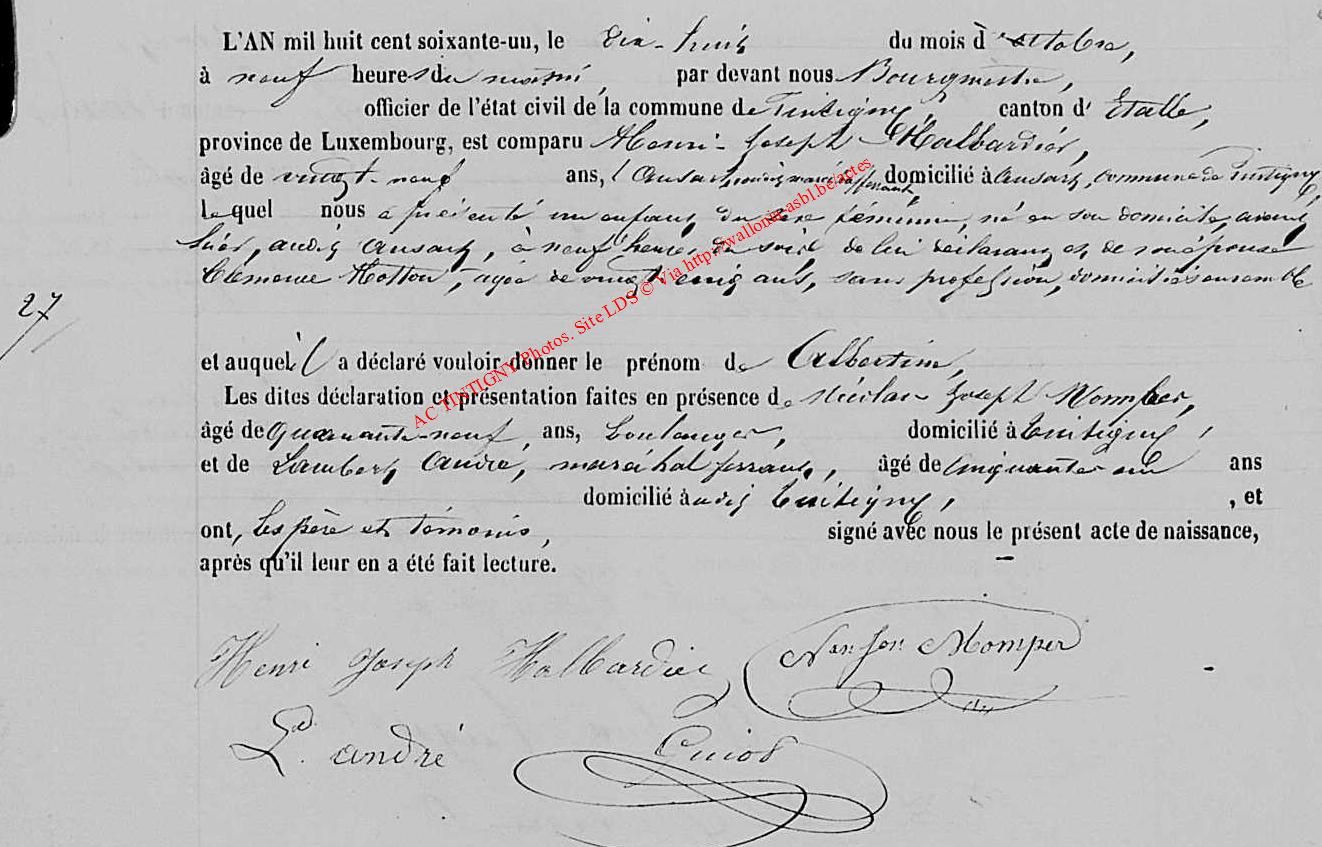 L'AN mil huit cent soixante-un, le dix-huit du mois d'octobre,
à neuf heures du matin, par devant nous Bourgmestre,
officier de l'état civil de la commune de Tintigny, canton d'Etalle,
province de Luxembourg, est comparu Henri-Joseph Halbardier,
âgé de vingt-neuf ans, domicilié à Ansart, commune de Tintigny,
lequel nous a présenté un enfant du sexe féminin, né en son domicile, avant
hier, audit Ansart, à neuf heures du soir, de lui déclarant et de son épouse
Clémence Hotton, agée de vingt cinq ans, sans profession, domiciliés ensemble
27
et auquel il a déclaré vouloir donner le prénom de Albertine,
Les dites déclaration et présentation faites en présence de Nicolas Joseph Momper,
âgé de Quarante-neuf ans, boulanger, domicilié à Tintigny,
et de Lambert André, maréchal ferrant, âgé de cinquante ans
domicilié à udit Tintigny, , et
ont, les père et témoins, signé avec nous le présent acte de naissance,
après qu'il leur en a été fait lecture.
Henri Joseph Halbardier Momper
L. andré Guiot
AC TINTIGNY Photos. Site LDS © Via http://wallonia-asbl.be/actes